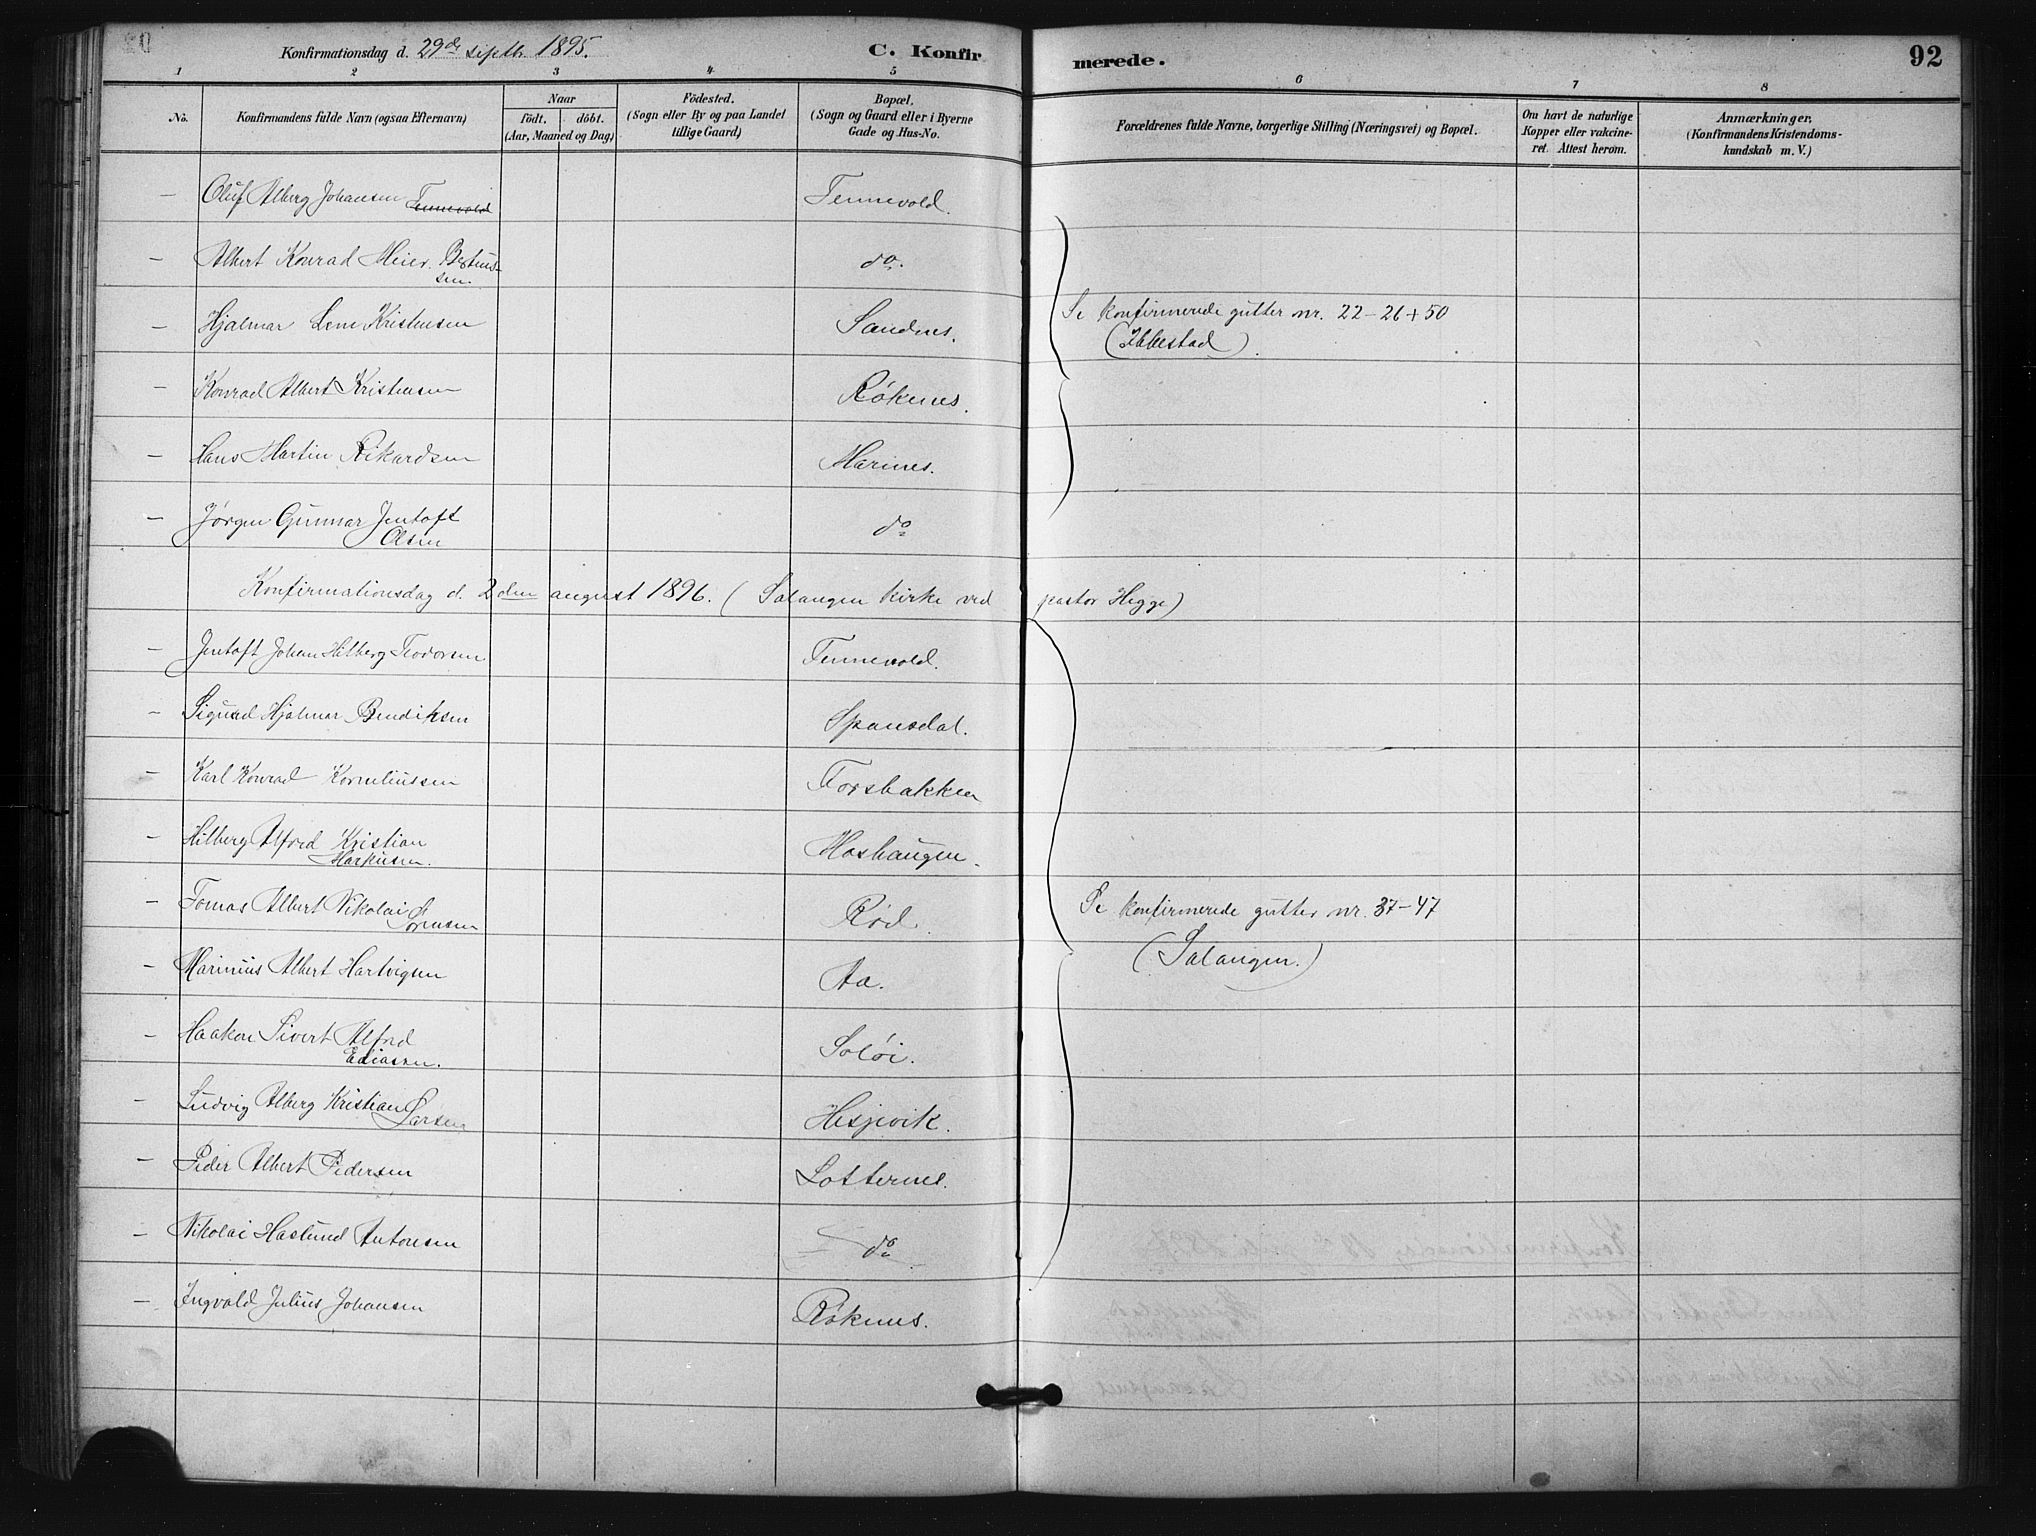 Konfirmationsdag d. 29de septbr. 1895. C. Konfirmerede. 92
1 2 3 4 5 6 7 8
No.
Konfirmandens fulde Navn (ogsaa Efternavn)
Naar
födt. döbt.
(Aar, Maaned og Dag)
Födested.
(Sogn eller By og paa Landet
tillige Gaard)
Bopæl.
(Sogn og Gaard eller i Byerne
Gade og Hus-No.
Forældrenes fulde Navne, borgerlige Stilling (Næringsvei) og Bopæl.
Om havt de naturlige
Kopper eller vakcine-
ret. Attest herom.
Anmærkninger,
(Konfirmandens Kristendoms-
kundskab m. V.)
— Oluf Alberg Johansen Tennevold Tennevold.
— Albert Konrad Meier Berteus-
sen. do.
— Hjalmar Lem Kristensen Sandnes.
Se konfirmerede gutter nr. 22-26+50
(Ibbestad)
— Konrad Albert Kristensen Røknes.
— Hans Martin Rikardsen Marines.
— Jørgen Gunnar Jentoft
Olsen do
Konfirmationsdag d. 2den august 1896. (Salangen kirke ved pastor Hegge)
— Jentoft Johan Hilberg Teodorsen Tennevold.
— Sigurd Hjalmar Bendiksen Spansdal.
— Karl Konrad Korneliussen Forsbakken
— Hilberg Alfred Kristian
Markusen. Moshaugen.
— Tomas Albert Nikolai
Sørensen Rød.
Se konfirmerede gutter nr. 37-47
(Salangen.)
— Marinius Albert Hartvigsen Aa.
— Haakon Sivert Alfred
Eliassen. Soløi.
— Ludvig Alberg Kristian
Larsen Hesjevik.
— Peder Albert Pedersen Lotternes.
— Nikolai Haslund Antonsen do
— Ingvald Julius Johansen Røknes.